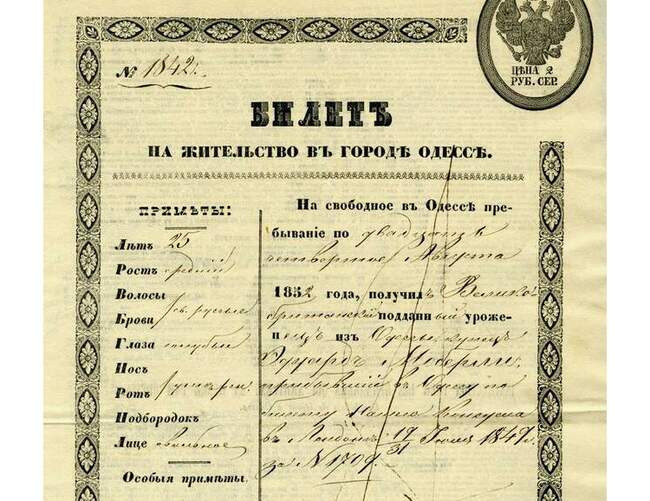 № 1842.
ЦѢНА 2
РУБ. СЕР.
БИЛЕТЪ
НА ЖИТЕЛЬСТВО ВЪ ГОРОДѢ ОДЕССѢ.
ПРИМѢТЫ:
Лѣтъ 25
Ростъ средній
Волосы
Брови св. русые
Глаза голубые
Носъ
Ротъ
Подбородокъ
Лице овальное
Особыя примѣты.
На свободное въ Одессѣ пре-
бываніе по двадцать
четвертое Августа
1852 года, получилъ Велико-
британскій подданный уроже-
нецъ изъ Одессы купецъ
Эдуардъ Моберли
прибывшій въ Одессу по
билету нашего Консула
въ Лондонѣ 19/31 Іюля 1847 г.
за N 1709.